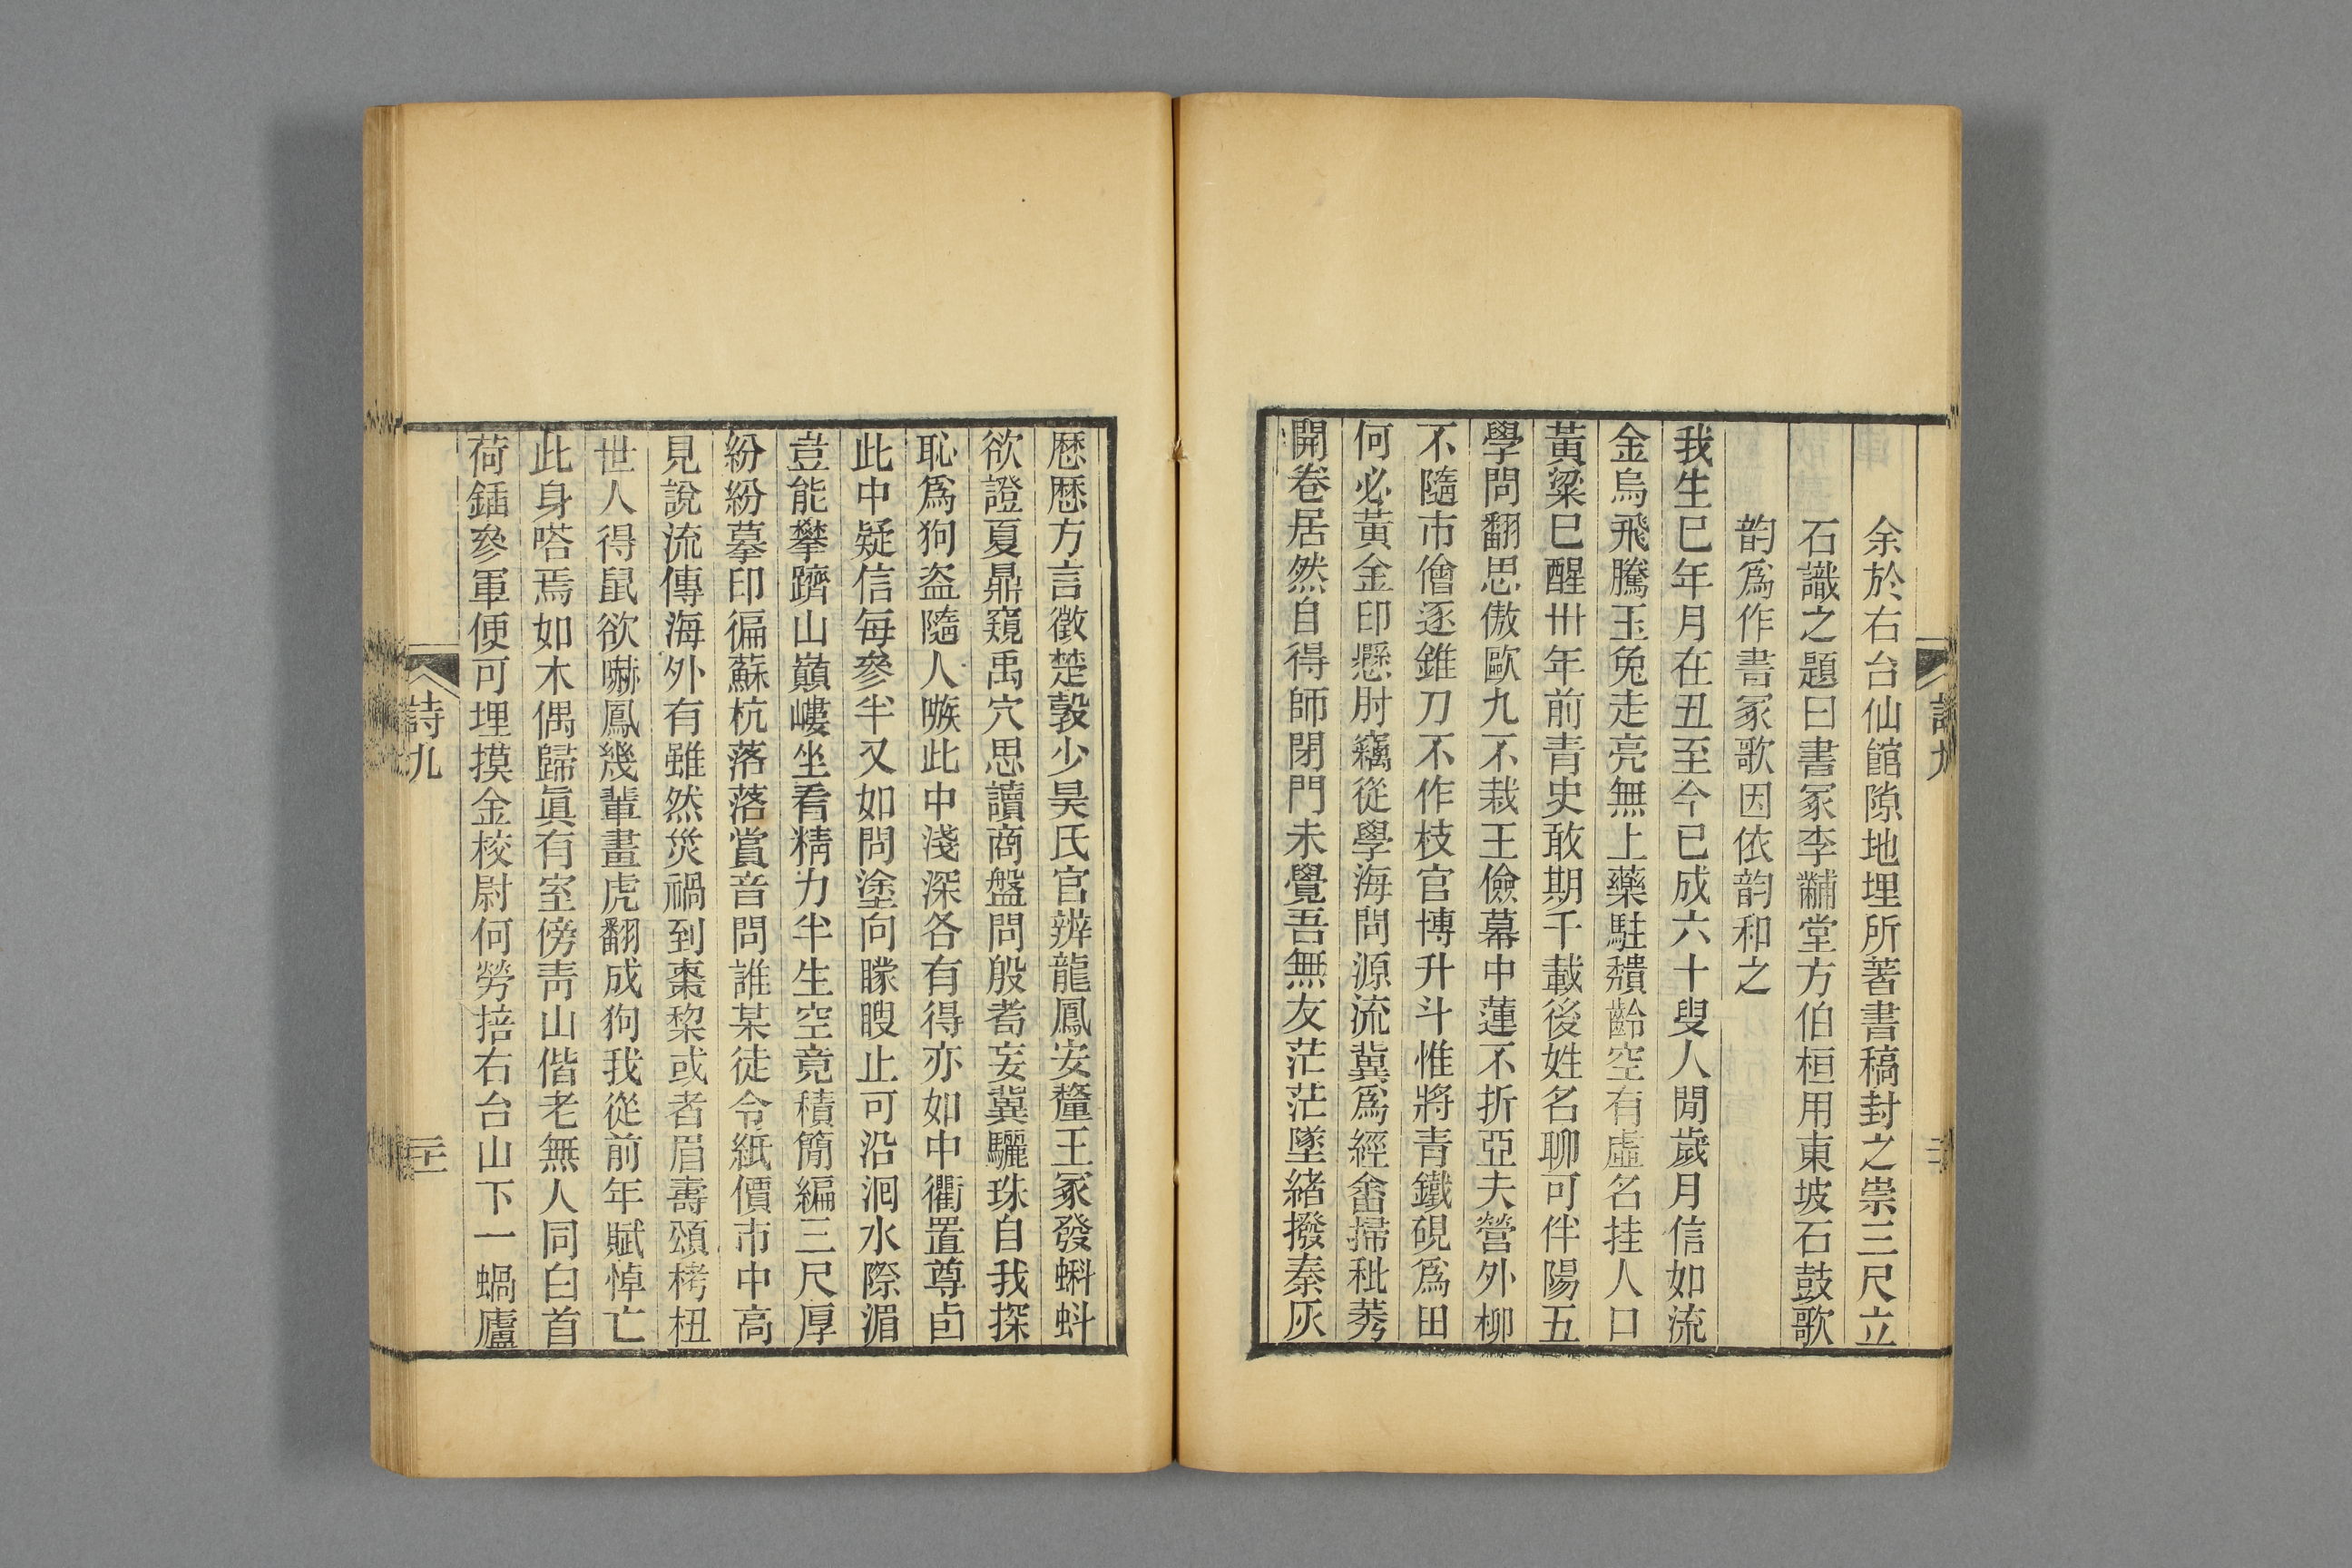 余於右台仙館隙地埋所著書稿封之崇三尺立
石識之題曰書冢李黼堂方伯桓用東坡石鼓歌
韵爲作書冢歌因依韵和之
我生巳年月在丑至今已成六十叟人閒歲月信如流
金烏飛騰玉兔走亮無上藥駐穨齡空有虛名挂人口
黃粱已醒卅年前青史敢期千載後姓名聊可伴陽五
學問翻思傲歐九不栽王儉幕中蓮不折亞夫營外柳
不隨市儈逐錐刀不作枝官博升斗惟將青鐵硯爲田
何必黃金印懸肘竊從學海問源流冀爲經畬掃秕莠
開卷居然自得師閉門未覺吾無友茫茫墜緒撥秦灰
歷歷方言徵楚㝅少昊氏官辨龍鳳安釐王冢發蝌蚪
欲證夏鼎窺禹穴思讀商盤問殷耇妄冀驪珠自我探
恥爲狗盜隨人嗾此中淺深各有得亦如中衢置尊卣
此中疑信每參半又如問塗向矇瞍止可沿洄水際湄
豈能攀躋山巔嶁坐看精力半生空竟積簡編三尺厚
紛紛摹印徧蘇杭落落賞音問誰某徒令紙價市中高
見說流傳海外有雖然災禍到棗棃或者眉壽頌栲杻
世人得鼠欲嚇鳳幾輩畫虎翻成狗我從前年賦悼亡
此身嗒焉如木偶歸眞有室傍靑山偕老無人同白首
荷鍤參軍便可埋摸金校尉何勞掊右台山下一蝸廬
詩九